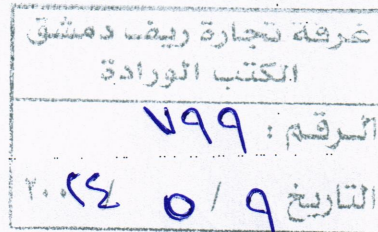 غرفة تجارة ريف دمشق
الكتب الورادة
الرقم : ٧٩٩
التاريخ ٩ / ٥ / ٢٠٠٢٤